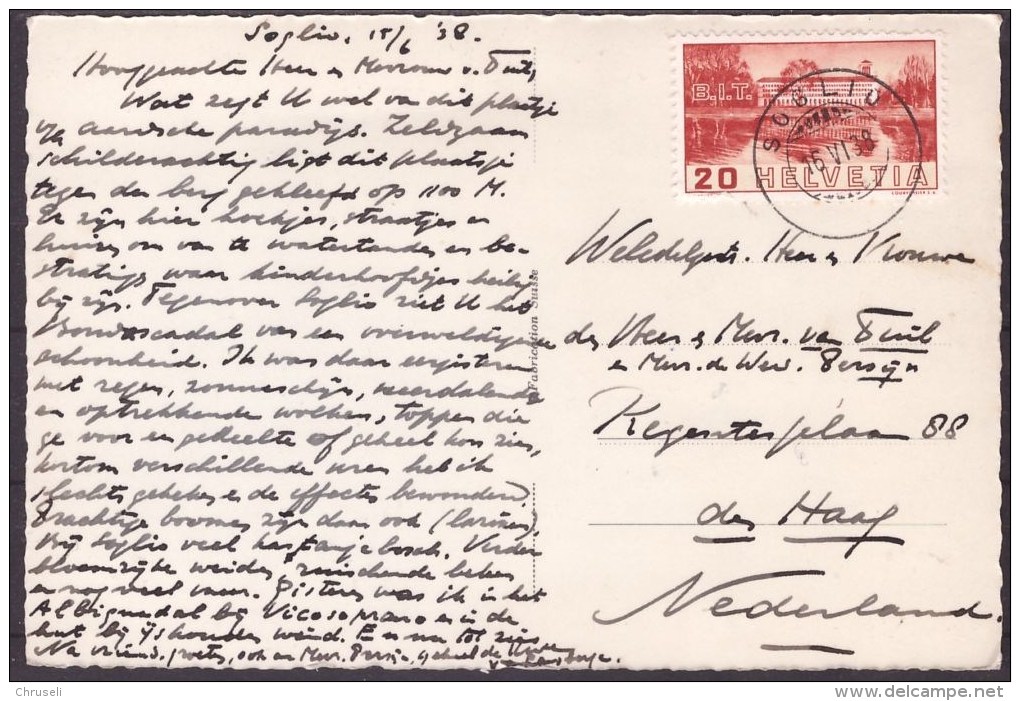 Soglio, 15/6 '38.
Hooggeachte Heer en Mevrouw v. Tuil,
Wat zegt U wel van dit plaatje
aardsche paradijs. Zeldzaam
schilderachtig ligt dit plaatsje
tegen den berg gekleefd op 1100 M.
Er zijn hier hoekjes, straatjes en
huizen om van te watertanden en be-
stratings waar kinderhoofdjes heilig
bij zijn. Tegenover Soglio ziet U het
Bondascadal van een overweldigende
schoonheid. Ik was daar eergisteren
met regen, zonneschijn, neerdalende
en optrekkende wolken, toppen die
je voor een gedeelte of geheel kon zien,
kortom verschillende uren heb ik
slechts gekeken en de effecten bewonderd
Prachtige boomen zijn daar ook (larixen),
Bij Soglio veel kastanjebosch. Verder
bloemrijke weiden, ruischende beken
en nog veel meer. Gisteren was ik in het
Albignadal bij Vicosoprano en in de
hut bij ijskouden wind. En nu tot ziens
Na vriend. groeten, ook aan Mevr. Persijn,
B.I.T.
20 HELVETIA
COURVOISIER S.A.
SOGLIO
15 VI 38
Fabrication Suisse
Weledelgeb. Heer en Vrouwe
den Heer en Mevr. van Tuil
en Mevr. de Wed. Persijn
Regentesselaan 88
den Haag
Nederland.
Chruseli
delcampe.net